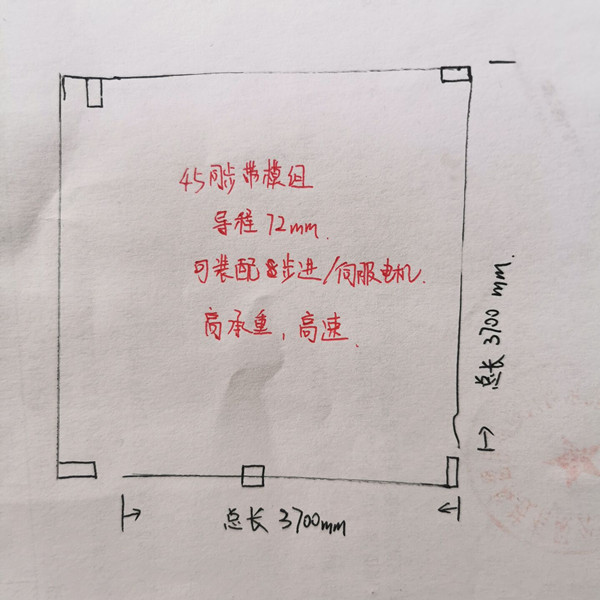 45同步带模组
导程72mm.
可装配步进/伺服电机.
高承重，高速.
总长 3700mm.
总长 3700mm